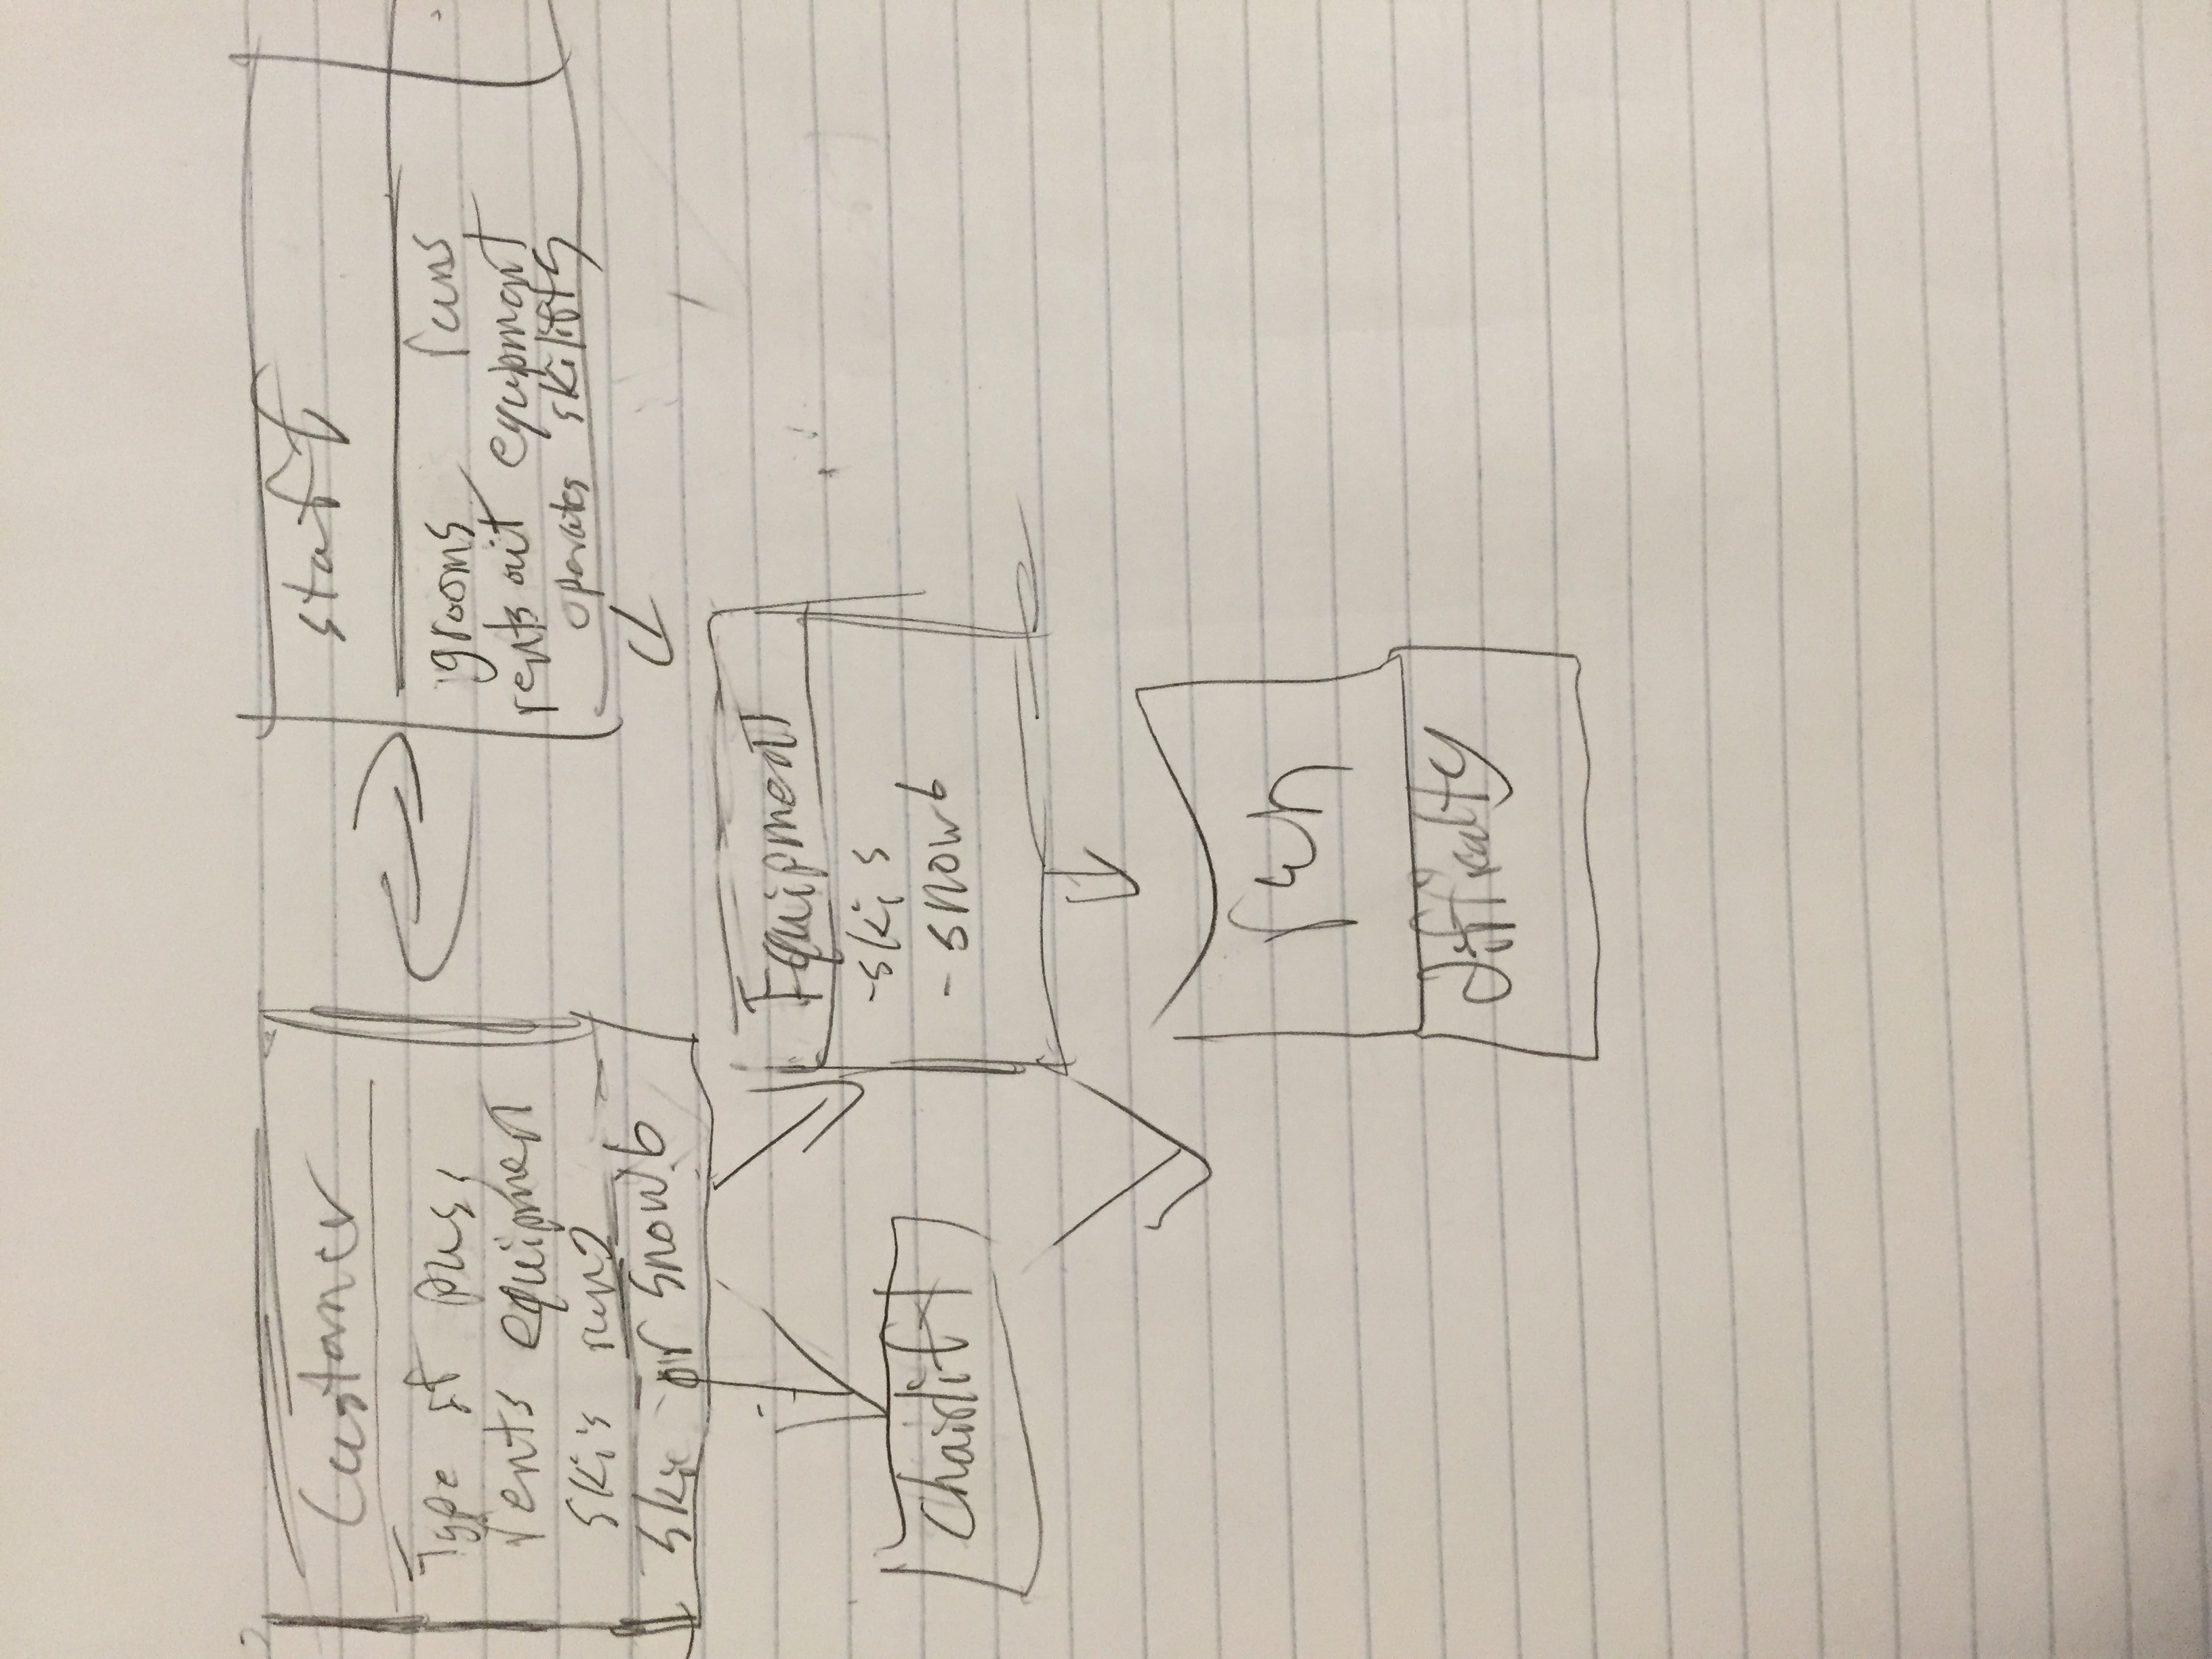 Customer
Type of pass
rents equipment
skis runs
ski or snowb
staff
grooms runs
rents out equipment
operates skilifts
Equipment
-skis
-snowb
Chairlift
run
difficulty